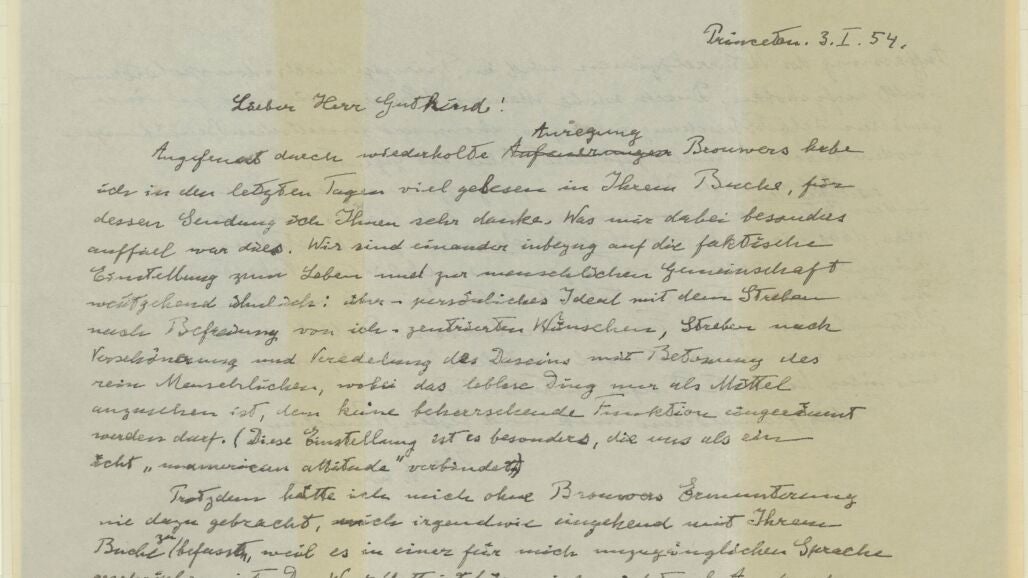 Princeton. 3. I. 54.
Lieber Herr Gutkind!
Anregung
Angefeuert durch wiederholte Anfeuerungen Brouwers habe
ich in den letzten Tagen viel gelesen in Ihrem Buche, für
dessen Sendung ich Ihnen sehr danke. Was mir dabei besonders
auffiel war dies. Wir sind einander inbezug auf die faktische
Einstellung zum Leben und zur menschlichen Gemeinschaft
weitgehend ähnlich: über-persönliches Ideal mit dem Streben
nach Befreiung von ich-zentrierten Wünschen, Streben nach
Verschönerung und Veredelung des Daseins mit Betonung des
rein Menschlichen, wobei das leblose Ding nur als Mittel
anzusehen ist, dem keine beherrschende Funktion eingeräumt
werden darf. (Diese Einstellung ist es besonders, die uns als ein
echt „unamerican attitude" verbindet)
Trotzdem hätte ich mich ohne Brouwers Ermunterung
nie dazu gebracht, mich irgendwie eingehend mit Ihrem
Buche zu befassen, weil es in einer für mich unzugänglichen Sprache